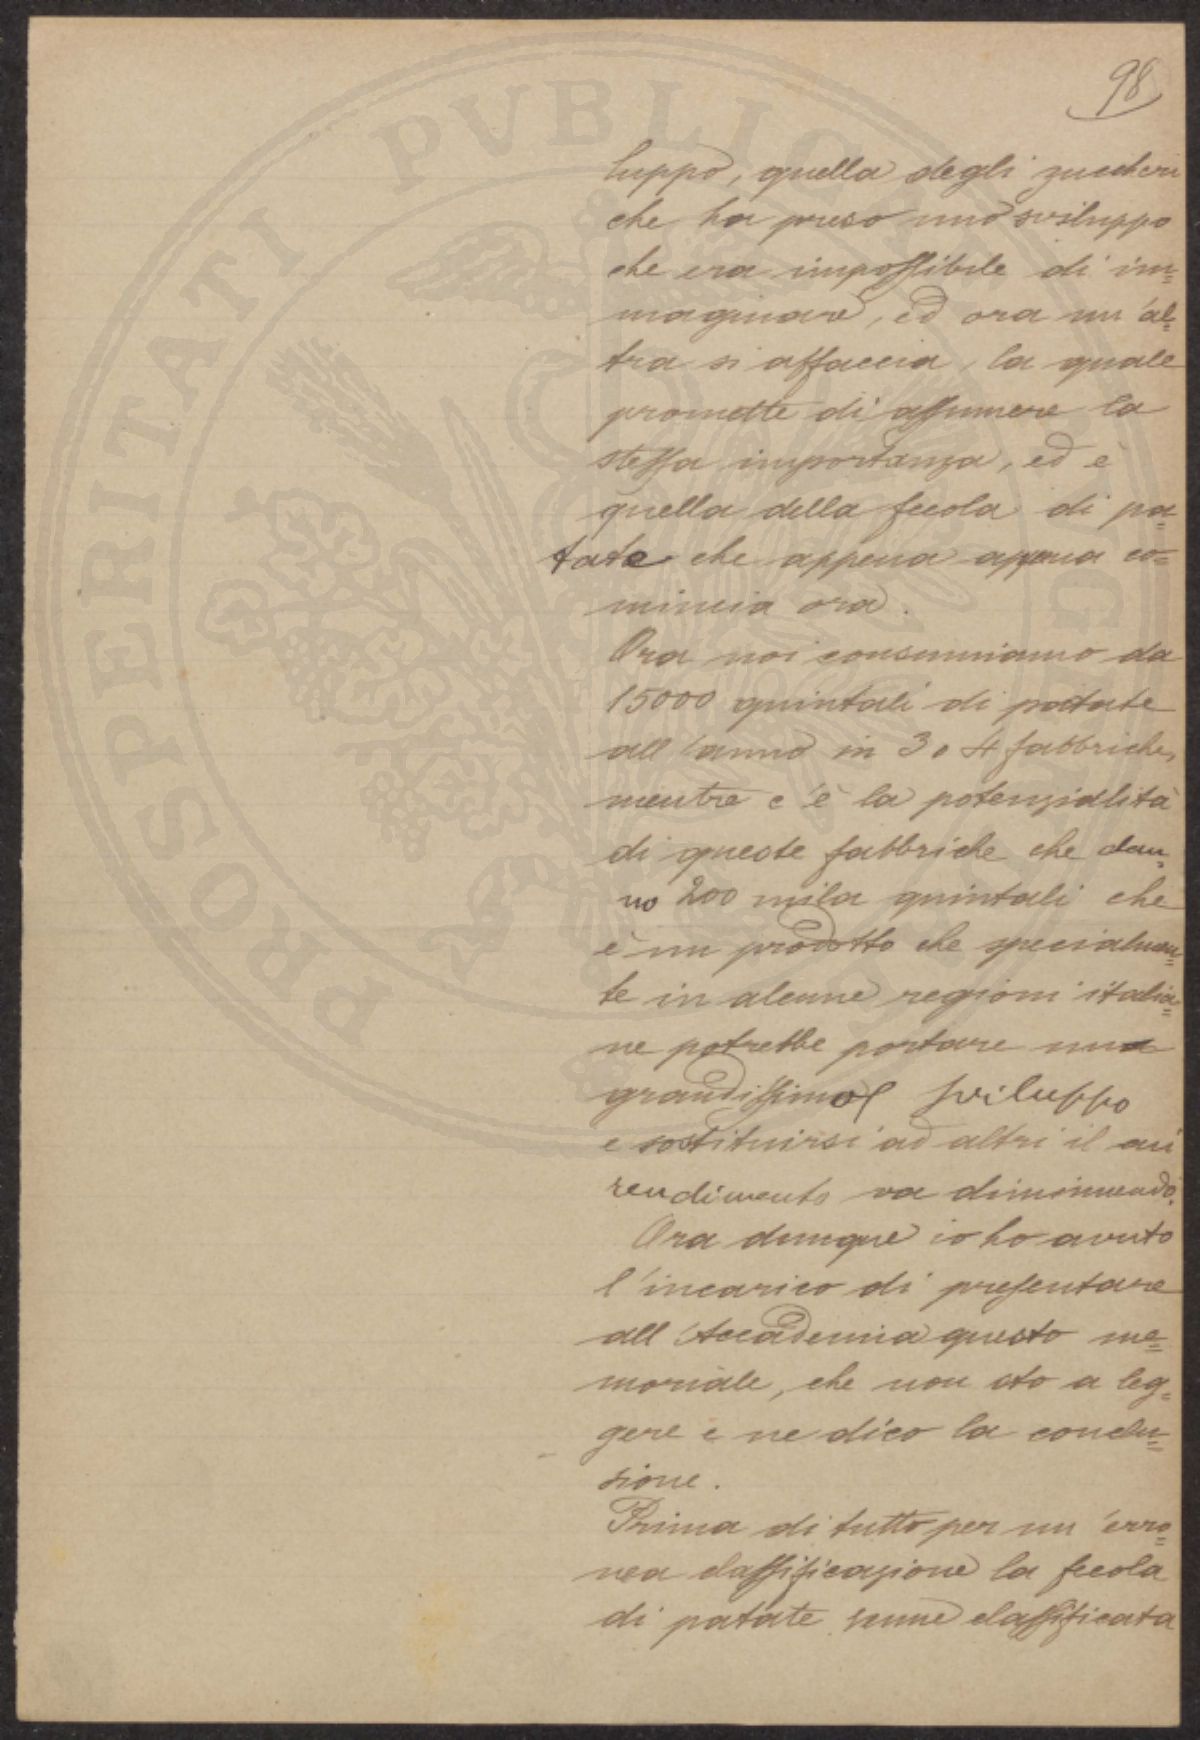 98
luppo, quella degli zuccheri
che ha preso uno sviluppo
che era impossibile di im=
maginare, ed ora un'al=
tra si affaccia, la quale
promette di assumere la
stessa importanza, ed è
quella della fecola di pa=
tate che appena appena co=
mincia ora.
Ora noi consumiamo da
15000 quintali di patate
all'anno in 3 o 4 fabbriche,
mentre c'è la potenzialità
di queste fabbriche che dan=
no 200 mila quintali che
è un prodotto che specialmen=
te in alcune regioni italia=
ne potrebbe portare un
grandissimo sviluppo
e sostituirsi ad altri il cui
rendimento va diminuendo.
Ora dunque io ho avuto
l'incarico di presentare
all'Accademia questo me=
moriale, che non sto a leg=
gere e ne dico la conclu=
sione.
Prima di tutto per un'erro=
nea classificazione la fecola
di patate venne classificata
PROSPERITATI PVBLICAE